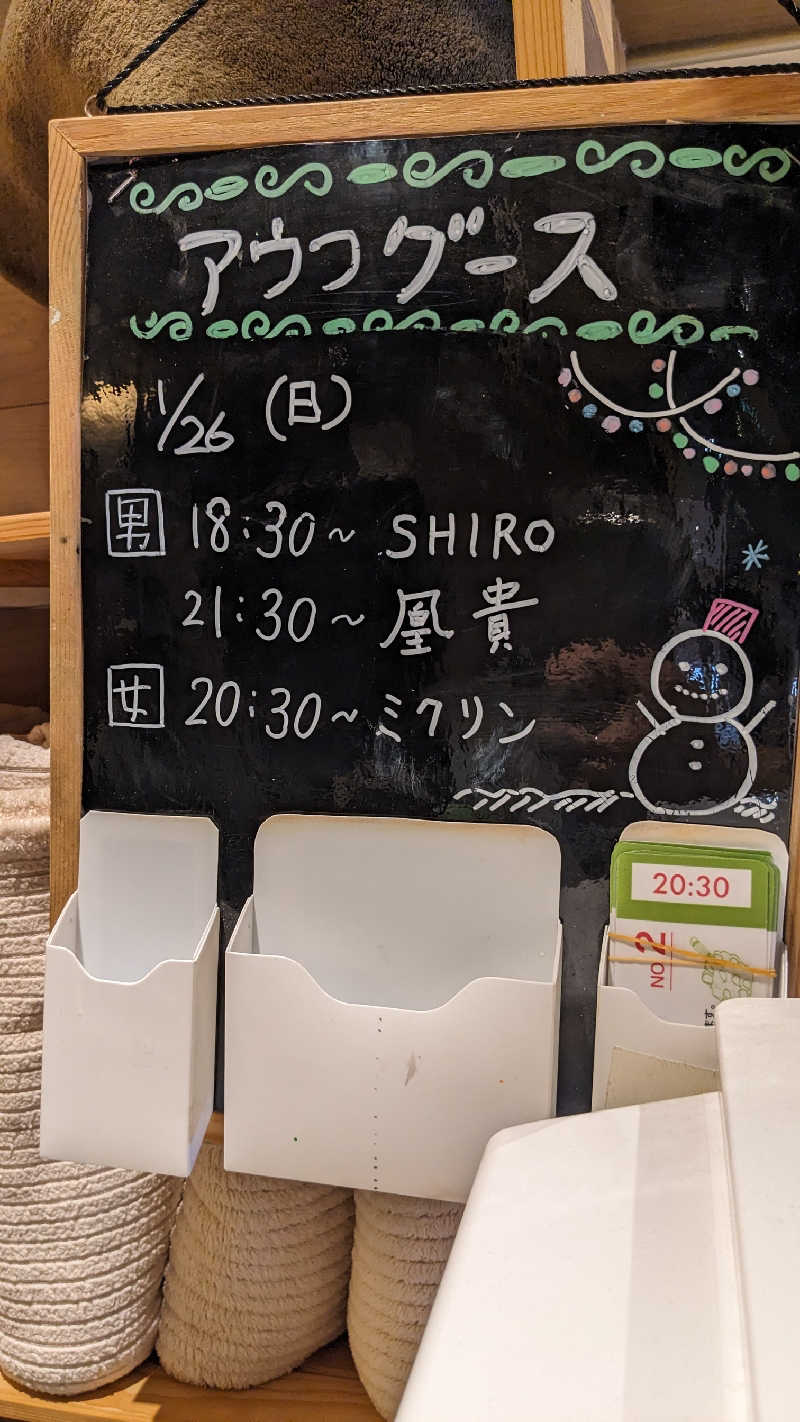 アウフグース
1/26 (日)
男 18:30~ SHIRO
21:30~ 凰貴
女 20:30~ ミクリン
20:30
NO.2
ます。